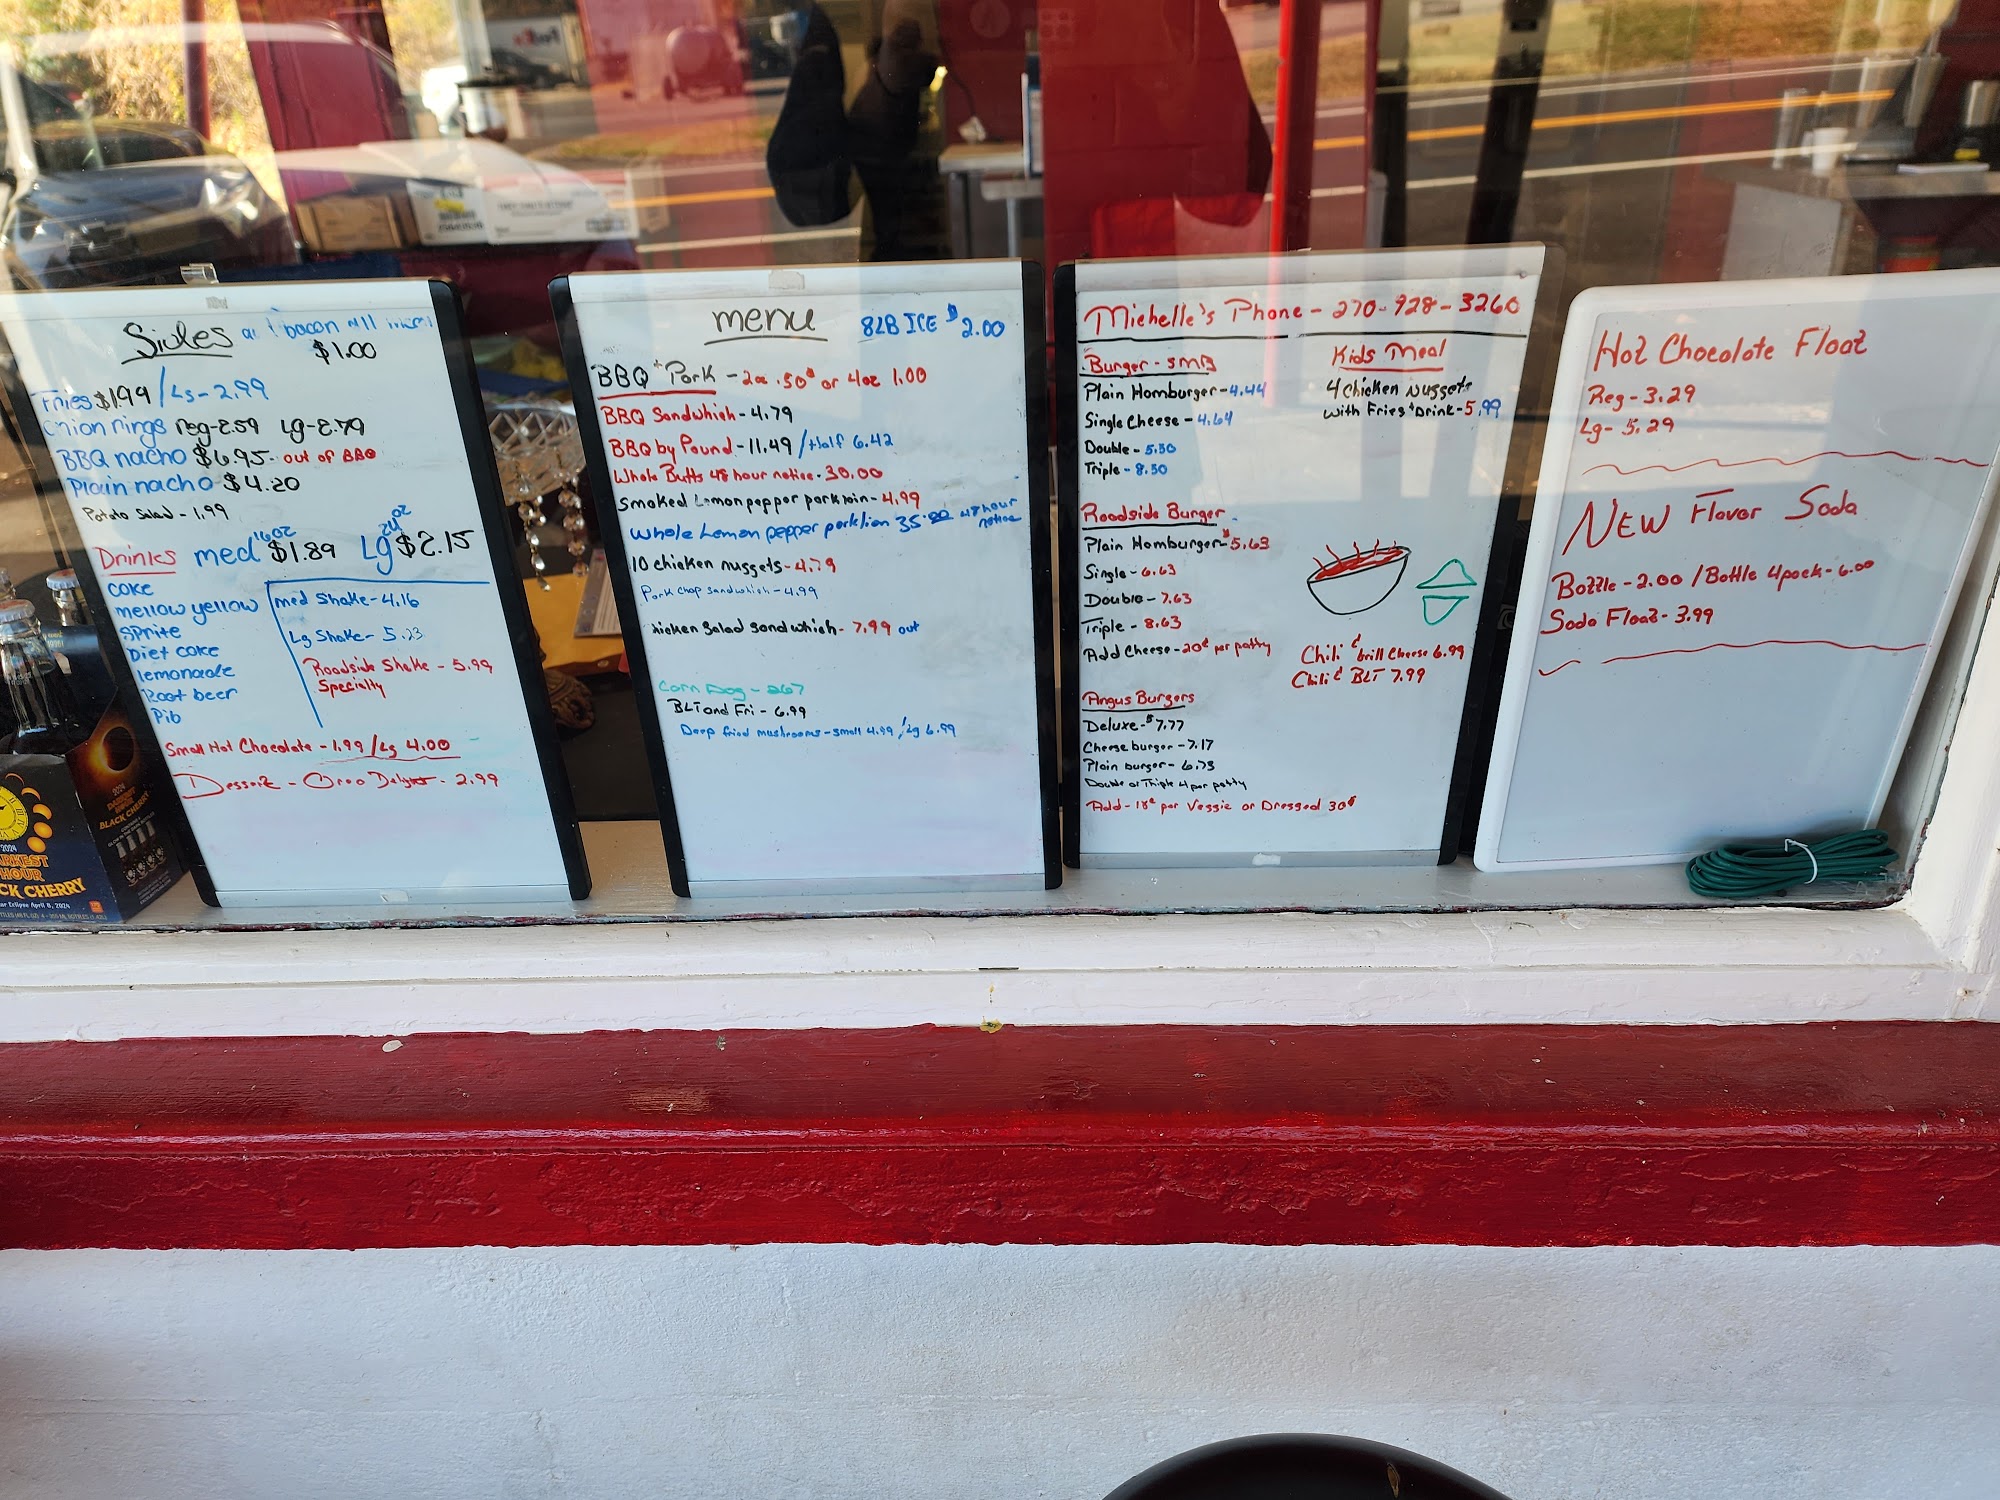 Sides
bacon
$1.00
Fries $1.99 / Lg - 2.99
Onion rings reg - 2.59 Lg - 2.79
BBQ nacho $6.95 - out of BBQ
Plain nacho $4.20
Potato Salad - 1.99
Drinks med 16oz $1.89 Lg 24oz $2.15
coke
mellow yellow
sprite
Diet coke
lemonade
Root beer
Pib
med Shake - 4.16
Lg Shake - 5.23
Roadside Shake - 5.99
Specialty
Small Hot Chocolate - 1.99 / Lg 4.00
Dessert - Oreo Delight - 2.99
menu 8LB ICE $2.00
BBQ + Pork - 2oz .50¢ or 4oz 1.00
BBQ Sandwhich - 4.79
BBQ by Pound - 11.49 / Half 6.42
Whole Butts 48 hour notice - 30.00
Smoked Lemon pepper porkloin - 4.99
Whole Lemon pepper porklion 35.00 48 hour notice
10 chicken nuggets - 4.79
Pork chop sandwhich - 4.99
hicken Salad Sandwhich - 7.99 out
Corn Dog - 2.67
BLT and Fri - 6.99
Deep fried mushrooms - small 4.99 / Lg 6.99
Michelle's Phone - 270-928-3260
Burger - SMB
Plain Homburger - 4.44
Single Cheese - 4.64
Double - 5.50
Triple - 8.50
Kids Meal
4 Chicken Nuggets
with Fries + Drink - 5.99
Roadside Burger
Plain Homburger - $5.63
Single - 6.63
Double - 7.63
Triple - 8.63
Add Cheese - 20¢ per patty
Chili & Grill Cheese 6.99
Chili & BLT 7.99
Angus Burgers
Deluxe - $7.77
Cheese burger - 7.17
Plain burger - 6.73
Double or Triple 4 per patty
Add - 18¢ per Veggie or Dressed 30¢
Hot Chocolate Float
Reg - 3.29
Lg - 5.29
NEW Flavor Soda
Bottle - 2.00 / Bottle 4pack - 6.00
Soda Float - 3.99
2024
DARKEST
HOUR
BLACK CHERRY
2024
ARKEST
HOUR
CK CHERRY
ar Eclipse April 8, 2024